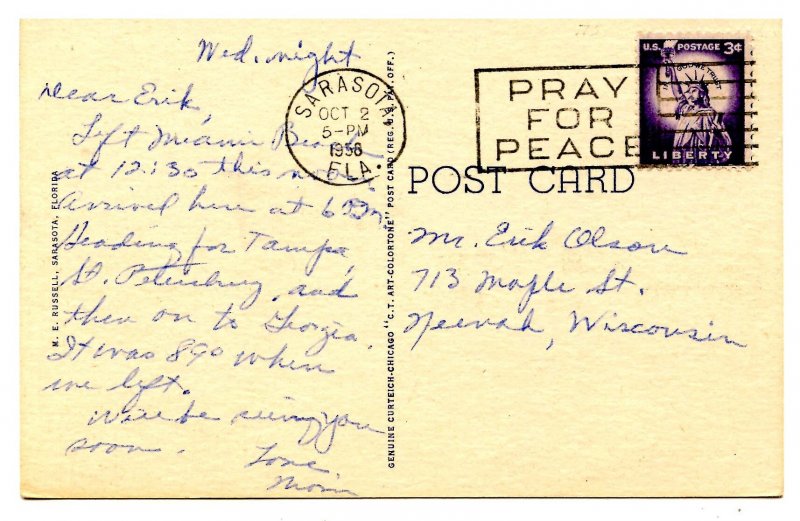 Wed. night
Dear Erik,
Left Miami Beach
at 12:30 this
Arrived here at 6 P.M.
Heading for Tampa,
St. Petersburg, and
then on to Georgia.
It was 89° when
we left.
Will be seeing you
soon.
Love
Mom
M. E. RUSSELL, SARASOTA, FLORIDA
GENUINE CURTEICH-CHICAGO "C.T. ART-COLORTONE" POST CARD (REG. U.S. PAT. OFF.)
SARASOTA,
OCT 2
5-PM
1956
FLA.
PRAY
FOR
PEACE
U.S. POSTAGE 3¢
IN GOD WE TRUST
LIBERTY
POST CARD
Mr. Erik Olson
713 Maple St.
Neenah, Wisconsin